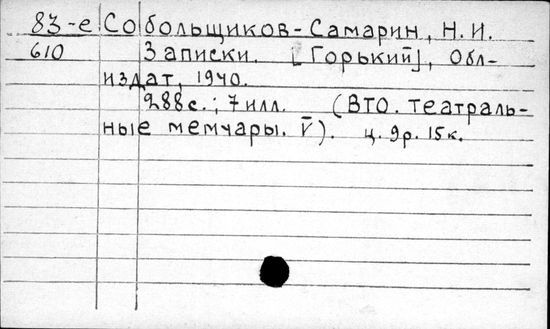 83-е Собольщиков-Самарин, Н.И.
610 Записки. [Горький], Обл-
издат, 1940.
288с.; 7илл. (ВТО. Театраль-
ные мемуары. V). ц. 9р. 15к.